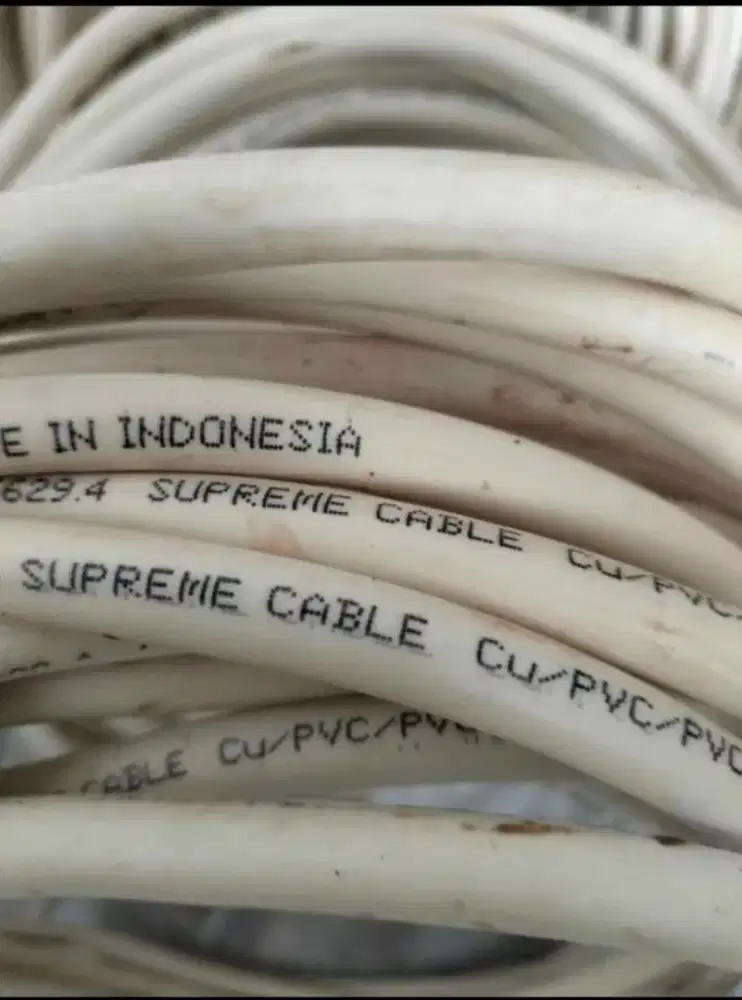 E IN INDONESIA
629.4 SUPREME CABLE Cu/PVC
SUPREME CABLE Cu/PVC/PVC
CABLE Cu/PVC/PV